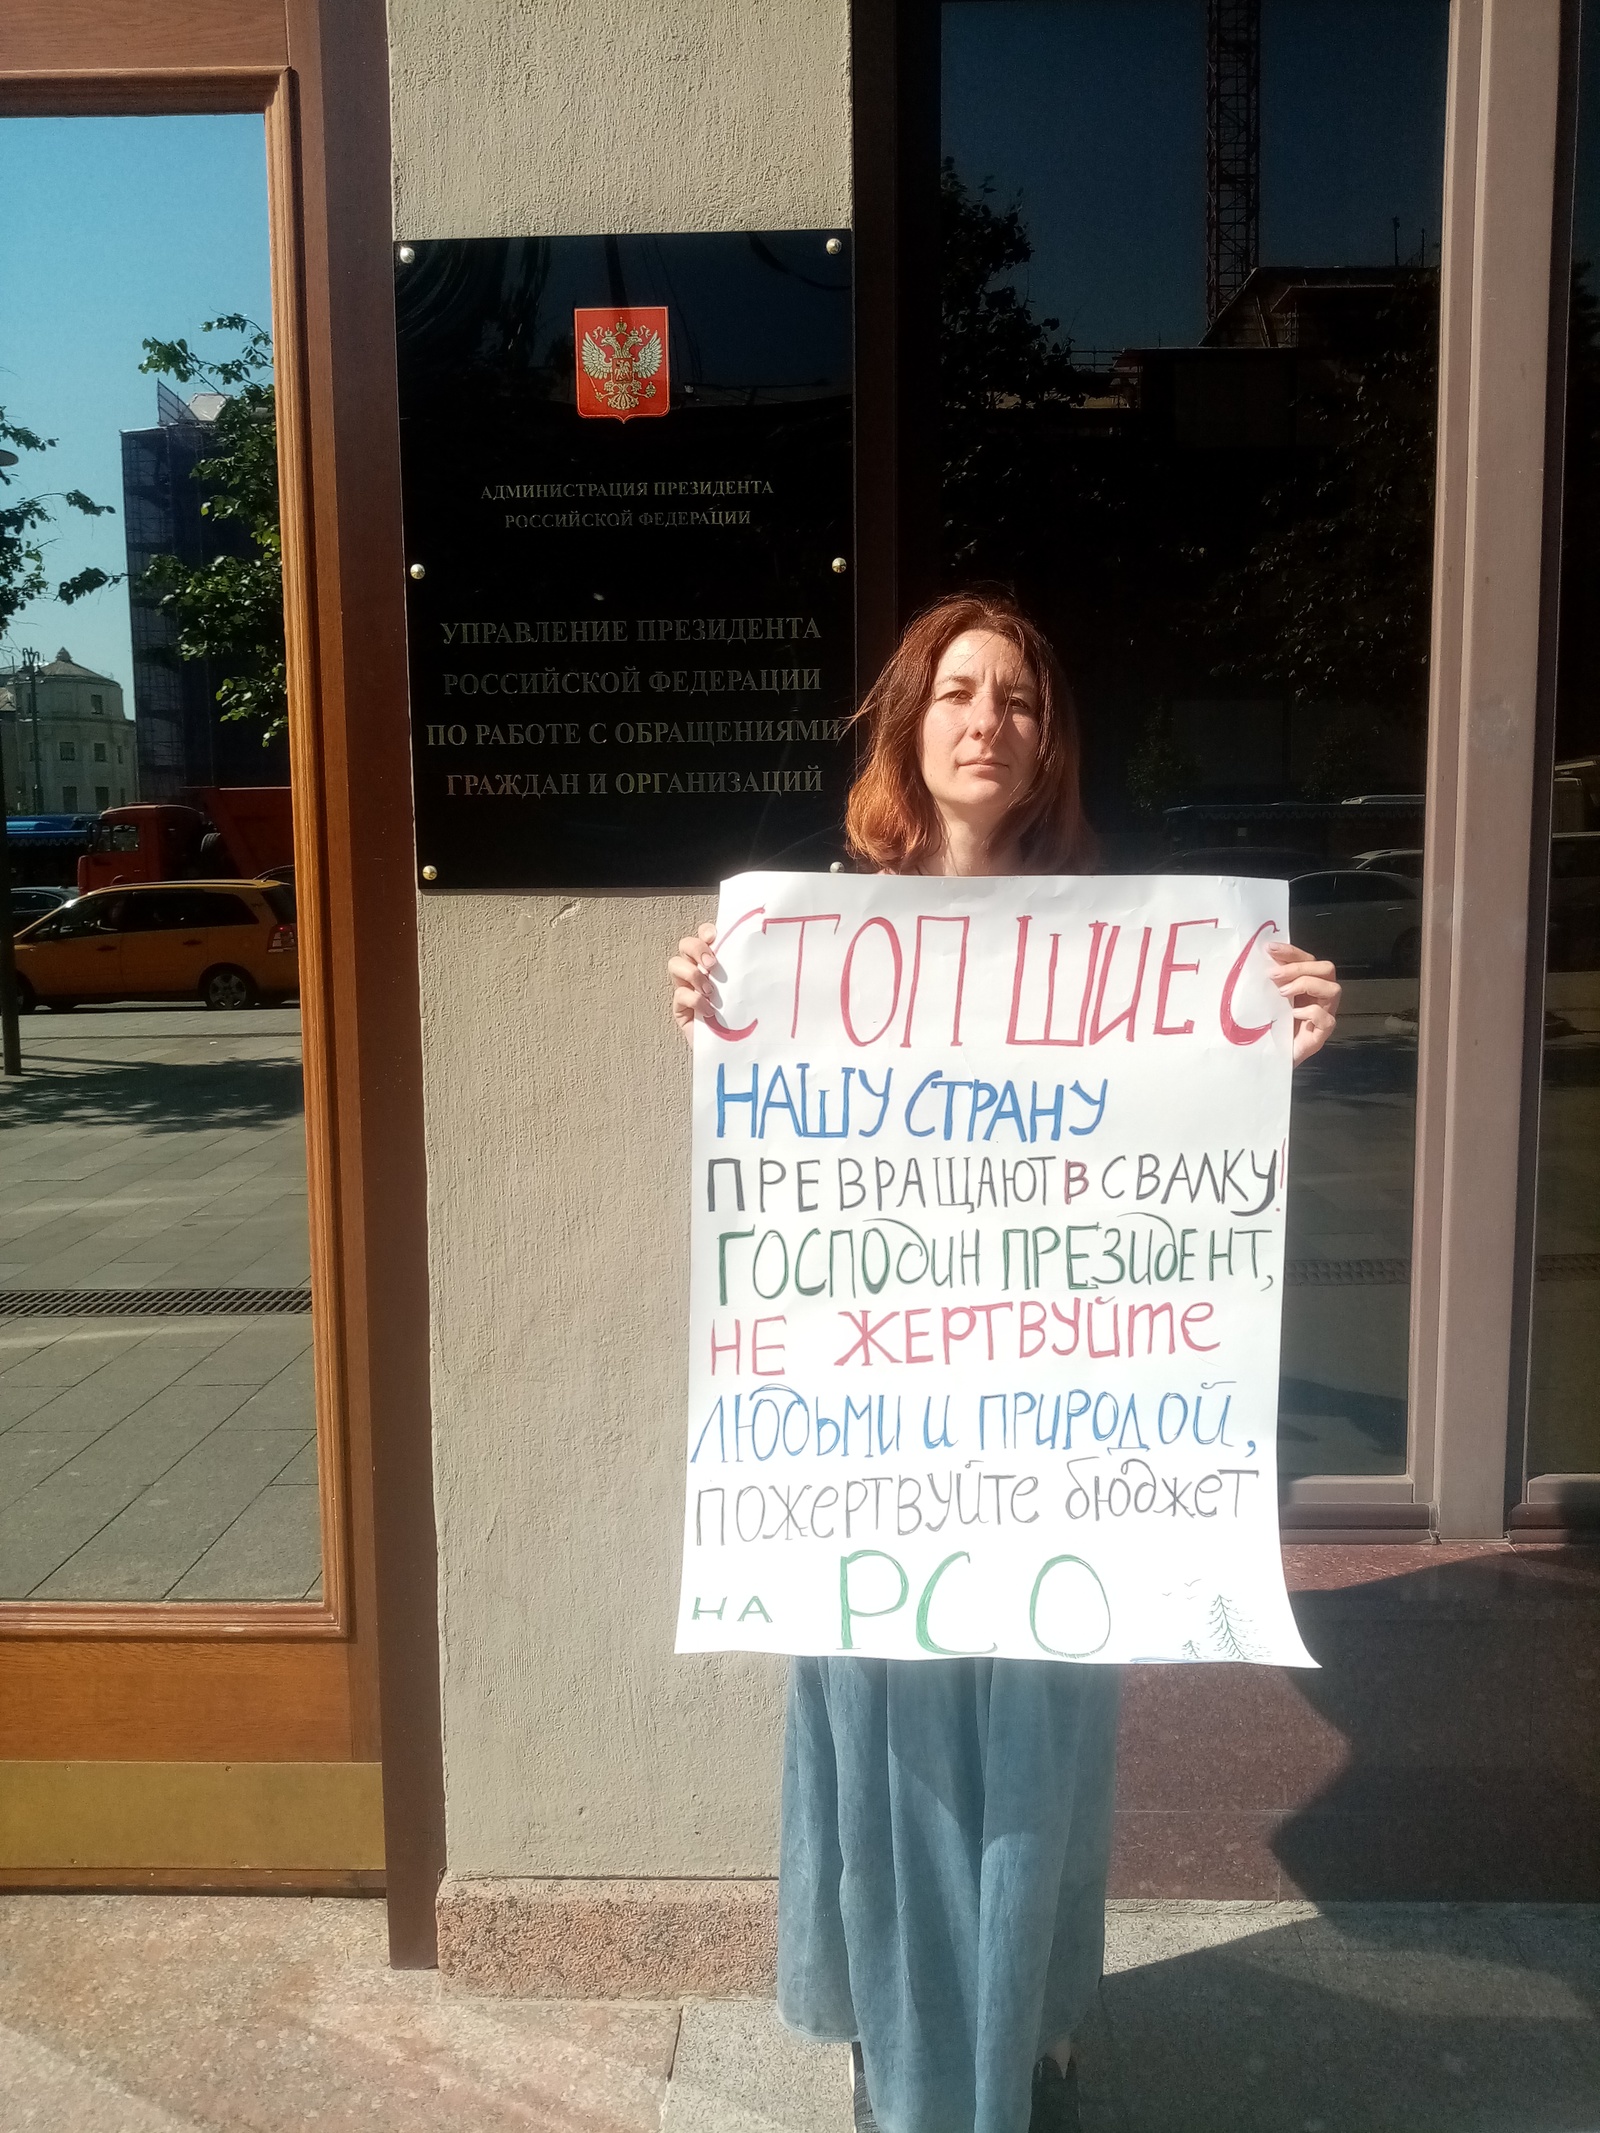 АДМИНИСТРАЦИЯ ПРЕЗИДЕНТА
РОССИЙСКОЙ ФЕДЕРАЦИИ
УПРАВЛЕНИЕ ПРЕЗИДЕНТА
РОССИЙСКОЙ ФЕДЕРАЦИИ
ПО РАБОТЕ С ОБРАЩЕНИЯМИ
ГРАЖДАН И ОРГАНИЗАЦИЙ
СТОП ШИЕС
НАШУ СТРАНУ
ПРЕВРАЩАЮТ В СВАЛКУ!
ГОСПОДИН ПРЕЗИДЕНТ,
НЕ ЖЕРТВУЙТЕ
ЛЮДЬМИ И ПРИРОДОЙ,
ПОЖЕРТВУЙТЕ БЮДЖЕТ
НА РСО